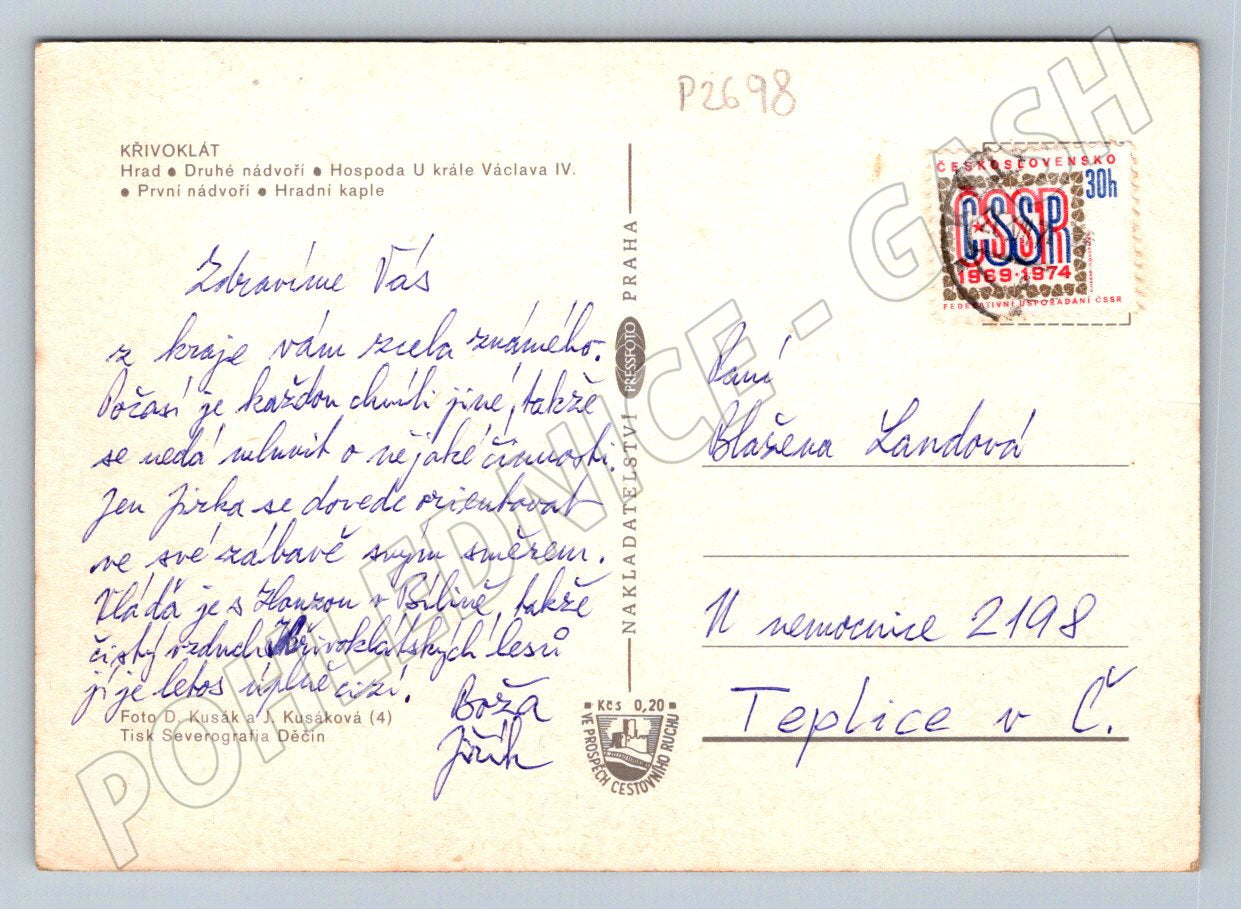 P2698
KŘIVOKLÁT
Hrad ● Druhé nádvoří ● Hospoda U krále Václava IV.
● První nádvoří ● Hradní kaple
Zdravíme Vás
z kraje vám zcela známého.
Počasí je každou chvíli jiné, takže
se nedá mluvit o nějaké činnosti.
Jen Jirka se dovede orientovat
ve své zábavě svým směrem.
Vláďa je s Honzou v Bílině, takže
čistý vzduch Křivoklátských lesů
jí je letos úplně cizí.
Boža
Jiřík
Foto D. Kusák a J. Kusáková (4)
Tisk Severografia Děčín
NAKLADATELSTVÍ PRESSFOTO PRAHA
Kčs 0,20
VE PROSPĚCH CESTOVNÍHO RUCHU
ČESKOSLOVENSKO
30h
ČSSR
1969·1974
FEDERATIVNÍ USPOŘÁDÁNÍ ČSSR
Paní
Blažena Landová
U nemocnice 2198
Teplice v Č.
POHLEDNICE - GASH